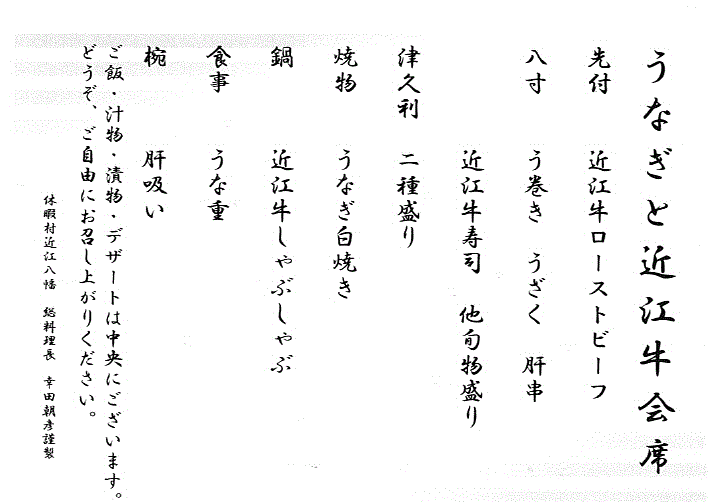 うなぎと近江牛会席
先付　近江牛ローストビーフ
八寸　う巻き　うざく　肝串
近江牛寿司　他旬物盛り
津久利　二種盛り
焼物　うなぎ白焼き
鍋　近江牛しゃぶしゃぶ
食事　うな重
椀　肝吸い
ご飯・汁物・漬物・デザートは中央にございます。
どうぞ、ご自由にお召し上がりください。
休暇村近江八幡　総料理長　幸田朝彦謹製